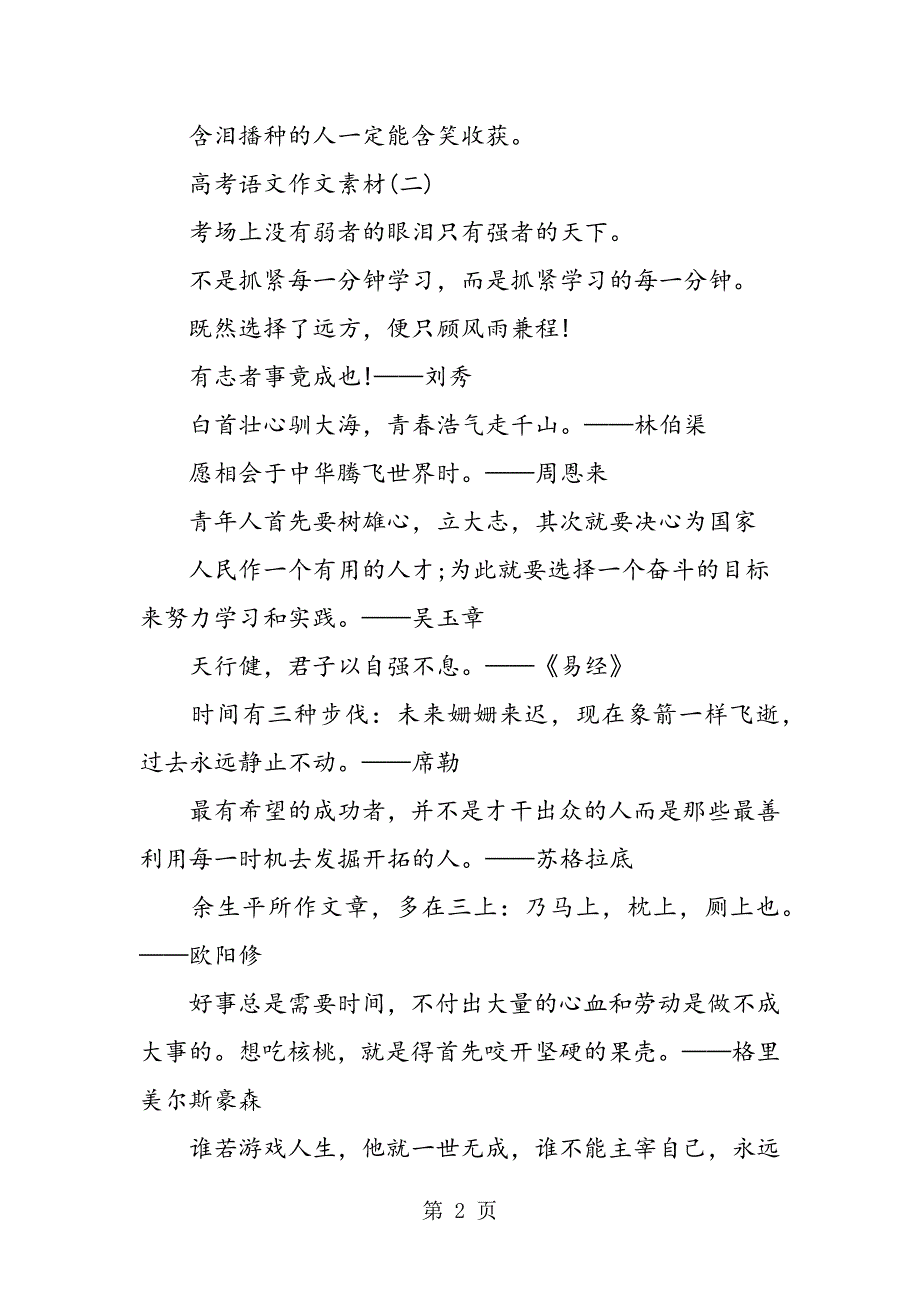 含泪播种的人一定能含笑收获。
高考语文作文素材(二)
考场上没有弱者的眼泪只有强者的天下。
不是抓紧每一分钟学习，而是抓紧学习的每一分钟。
既然选择了远方，便只顾风雨兼程!
有志者事竟成也!——刘秀
白首壮心驯大海，青春浩气走千山。——林伯渠
愿相会于中华腾飞世界时。——周恩来
青年人首先要树雄心，立大志，其次就要决心为国家
人民作一个有用的人才;为此就要选择一个奋斗的目标
来努力学习和实践。——吴玉章
天行健，君子以自强不息。——《易经》
时间有三种步伐：未来姗姗来迟，现在象箭一样飞逝，
过去永远静止不动。——席勒
最有希望的成功者，并不是才干出众的人而是那些最善
利用每一时机去发掘开拓的人。——苏格拉底
余生平所作文章，多在三上：乃马上，枕上，厕上也。
——欧阳修
好事总是需要时间，不付出大量的心血和劳动是做不成
大事的。想吃核桃，就是得首先咬开坚硬的果壳。——格里
美尔斯豪森
谁若游戏人生，他就一世无成，谁不能主宰自己，永远
第 2 页